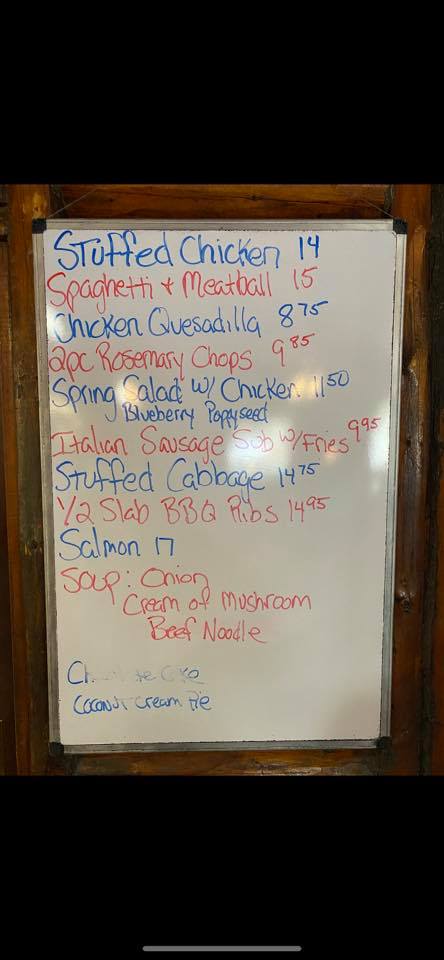 Stuffed Chicken 14
Spaghetti + Meatball 15
Chicken Quesadilla 8 75
2pc Rosemary Chops 9 85
Spring Salad w/ Chicken 11 50
Blueberry Poppyseed
Italian Sausage Sub w/Fries 9 95
Stuffed Cabbage 14 75
1/2 Slab BBQ Ribs 14 95
Salmon 17
Soup: Onion
Cream of Mushroom
Beef Noodle
Coconut Cream Pie